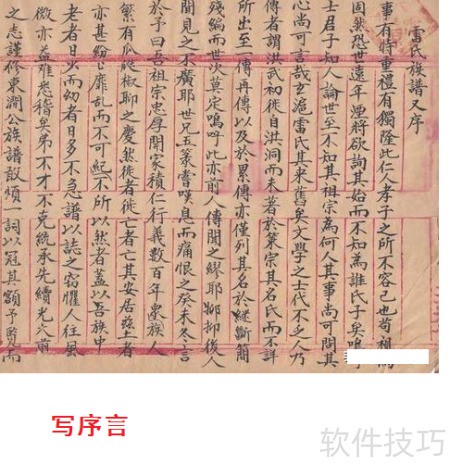 雷氏族譜又序
事有特重禮有獨隆此仁人孝子之所不容已也苟祖
固矣恐世遠年湮將欲詢其始而不知為誰氏子矣嗚
士君子知人論世至不知其祖宗為何人其事尚可問其
心尚可言哉玄滬雷氏其来舊矣文學之士代不乏人乃
傳者謂洪武初徙自洪洞而未著於宗其名氏而不詳
所出至一傳再傳以及於累傳亦僅列其名於斷簡
殘編而世次莫定嗚呼此亦前人傳聞之繆耶抑後人
聞見之不廣耶世兄五策嘗嘆息而痛恨之癸未冬言
於予曰吾祖宗忠厚開家積仁行義數百年族人
繁有瓜瓞椒聊之慶然徙者徙亡者亡其安居茲土者
亦甚紛靡乱而不可紀所以然者蓋以吾族中
老者日少而幼者日多不急譜以誌之窃懼人往風
微亦益难悉稽矣弟不才不克統承先緒光大前
之志謹修東澗公族譜敢煩一詞以冠其額予覽而
写序言
软件技巧